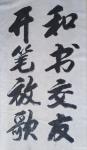 和书交友
开笔放歌